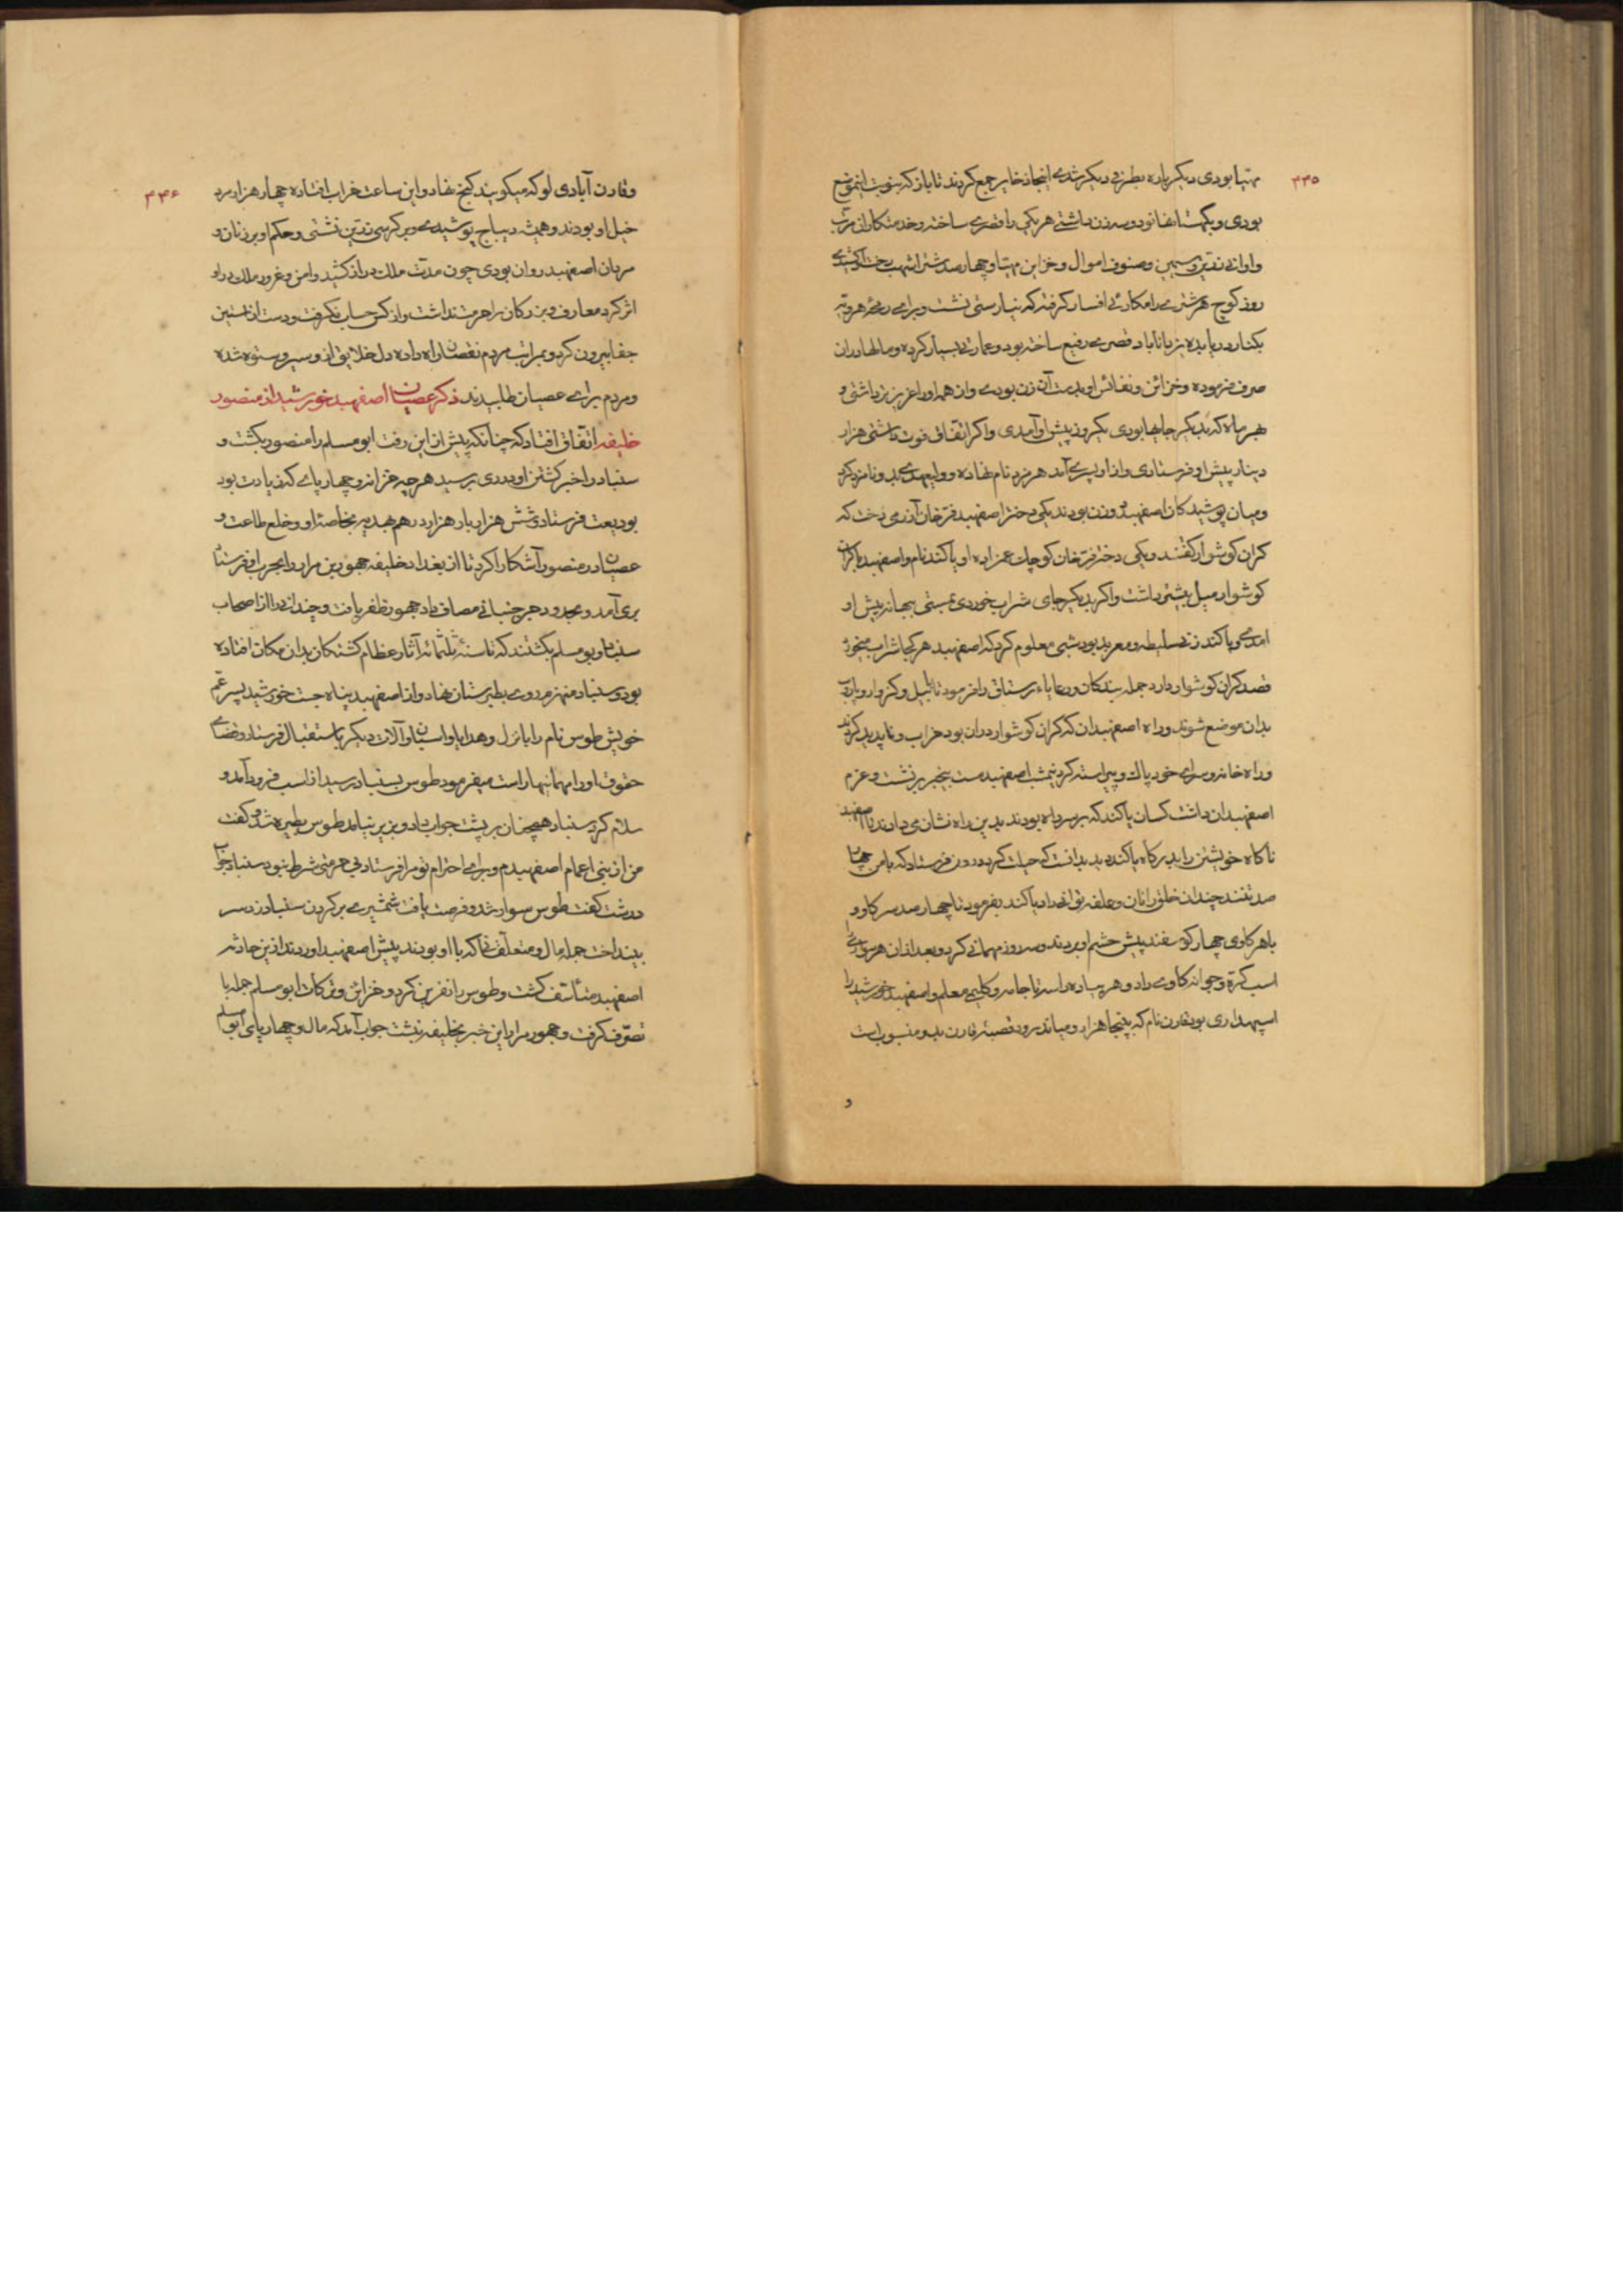 ۳۳۵
مهیا بودی دیکر باره بطرفی دیکر شدی اینجا ذخایر جمع کردند تا باز که بنوبت این موضع
بودی و بکهستانها نود و سه زن داشتی هر یکی را قصری ساخته و خدمتکاران مرتب
و اوانی زرین و سیمین و صنوف اموال و خزاین مهیا و چهارصد شتر اشهب رخت کشیدی
روز کوچ هر شتری را مکاری افسار کرفته که نیارستی نشست و برای رمجه هرویه
بکنار دریا بدیه یزدانآباد قصری رفیع ساخته بود و عمارتی بسیار کرده و مالها در ان
صرف فرموده و خزائن و نفائس او بدست آن زن بودی و ان همه او را عزیزتر داشتی و
هر ماه که بدیکر جایها بودی یکروز پیش او آمدی و اکر اتفاق فوت داشتی هزار
دینار پیش او فرستادی و از او پسری آمد هرمزد نام نهاده و ولیعهدی بدو نامزد کرد
و میان پوشیدکان اصفهبد دو زن بودند یکی دختر اصفهبد فرخان آزرمی دخت که
کران کوشوار کفتند و یکی دختر فرخان کوچک عمزاده او یاکند نام و اصفهبد با کران
کوشوار میل بیشتر داشت و اکر بدیکر جای شراب خوردی بمستی ببهانه پیش او
امدی و یاکند زنی سلیطه و معربد بود شبی معلوم کرد که اصفهبد هر کجا شراب میخورد
قصد کران کوشوار دارد جمله بندکان و رعایاء رستاق را فرمود تا بابیل و کزوار و پاروب
بدان موضع شوند و راه اصفهبدان که کران کوشوار در ان بود خراب و ناپدید کردند
و راه خانه و سرای خود پاک و پیراسته کرد نیمشب اصفهبد مست بیخبر بر نشست و عزم
اصفهبدان داشت کسان یاکند که بر سر راه بودند بدین راه نشان می دادند تا اصفهبد
ناکاه خویشتن را بدرکاه یاکند دید بدانست که حیلت کرد درون فرستاد که با من چهار
صد تنند چندان خلق را نان و علف توانی داد یاکند بفرمود تا چهار صد سر کاو و
با هر کاوی چهار کوسفند پیش حشم او بردند و سه روز مهمانی کرد و بعد از ان هر سواری را
اسب کره و جوانه کاوی داد و هر پیاده را سر تا جامه و کلیجی معلم و اصفهبد خورشید را
اسپهداری بود قارن نام که پنجاهزار و میانده رود قصبه قارن بدو منسوب است
و
۳۳۶
و قارن آبادی لوکه میکویند کنج نهاد و این ساعت خراب افتاده چهار هزار مرد
خیل او بودند و همیشه دیباج پوشیدی و بر کرسی زرین نشستی و حکم او بر زنان و
مردان اصفهبد روان بودی چون مدت ملک دراز کشید و امن و غرور ملک در او
اثر کرد معارف و بزرکان را حرمت نداشت و از کس حساب نکرفت و دست از آستین
جفا بیرون کرد و بمراتب مردم نقصان راه داده دل خلایق از و سیر و ستوه شده
و مردم برای عصیان طلبیدند ذکر عصیان اصفهبد خورشید از منصور
خلیفه اتفاق افتاد که چنانکه پیش از این رفت ابو مسلم را منصور بکشت و
سنباد را خبر کشتن او در ری برسید هر چه خزانه و چهارپای که زیادت بود
بودیعت فرستاد و شش هزار بار هزار درهم بهدیه بخاصه او و خلع طاعت و
عصیان در منصور آشکارا کرد تا از بغداد خلیفه جمهور بن مرار را بحرب او فرستاد
بری آمد و بحدود جرجنبانی مصاف داد جمهور ظفر یافت و چندانی را از اصحاب
سنباد و بو مسلم بکشتند که تا سنه ثلثمائه آثار عظام کشتکان بدان مکان افتاده
بود و سنباد منهزم روی بطبرستان نهاد و از اصفهبد پناه جست خورشید پسر عم
خویش طوس نام را با نزل و هدایا و اسپان و آلات دیکر باستقبال فرستاد و قضاء
حقوق او را مهمانیها راست میفرمود طوس بسنباد رسید از اسب فرود آمد و
سلام کرد سنباد همچنان بر پشت جواب داد و بزیر نیامد طوس بطیره شد و کفت
من از بنی اعمام اصفهبدم و برای احترام تو مرا فرستاد بی حرمتی شرط نبود سنباد جواب
درشت کفت طوس سوار شد و فرصت یافت شمشیری بر کردن سنباد زد سر
بینداخت جمله مال و متعلقانی که با او بودند پیش اصفهبد اوردند ازین حادثه
اصفهبد متأسف کشت و طوس را نفرین کرد و خزائن و ترکات ابو مسلم جمله با
تصرف کرفت و جمهور مرار این خبر بخلیفه نبشت جواب آمد که مال و چهارپای ابو مسلم